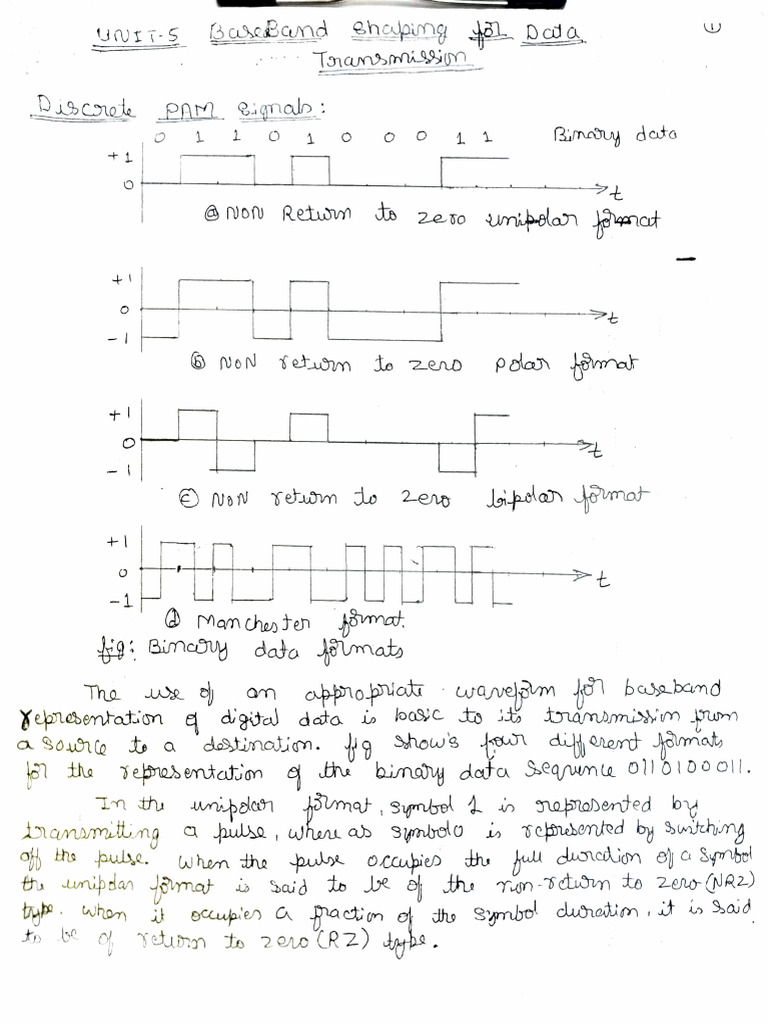 UNIT-5 BaseBand Shaping for Data
Transmission
1
Discrete PAM Signals:
0 1 1 0 1 0 0 0 1 1 Binary data
+1
0
t
(a) NON Return to zero unipolar format
+1
0
-1
t
(b) NON return to zero polar format
+1
0
-1
t
(c) NON return to zero bipolar format
+1
0
-1
t
(d) Manchester format.
fig: Binary data formats
The use of an appropriate waveform for baseband
representation of digital data is basic to its transmission from
a source to a destination. fig show's four different formats
for the representation of the binary data sequence 0110100011.
In the unipolar format, symbol 1 is represented by
transmitting a pulse, where as symbol 0 is represented by switching
off the pulse. When the pulse occupies the full duration of a symbol
the unipolar format is said to be of the non-return to zero (NRZ)
type. When it occupies a fraction of the symbol duration, it is said
to be of return to zero (RZ) type.